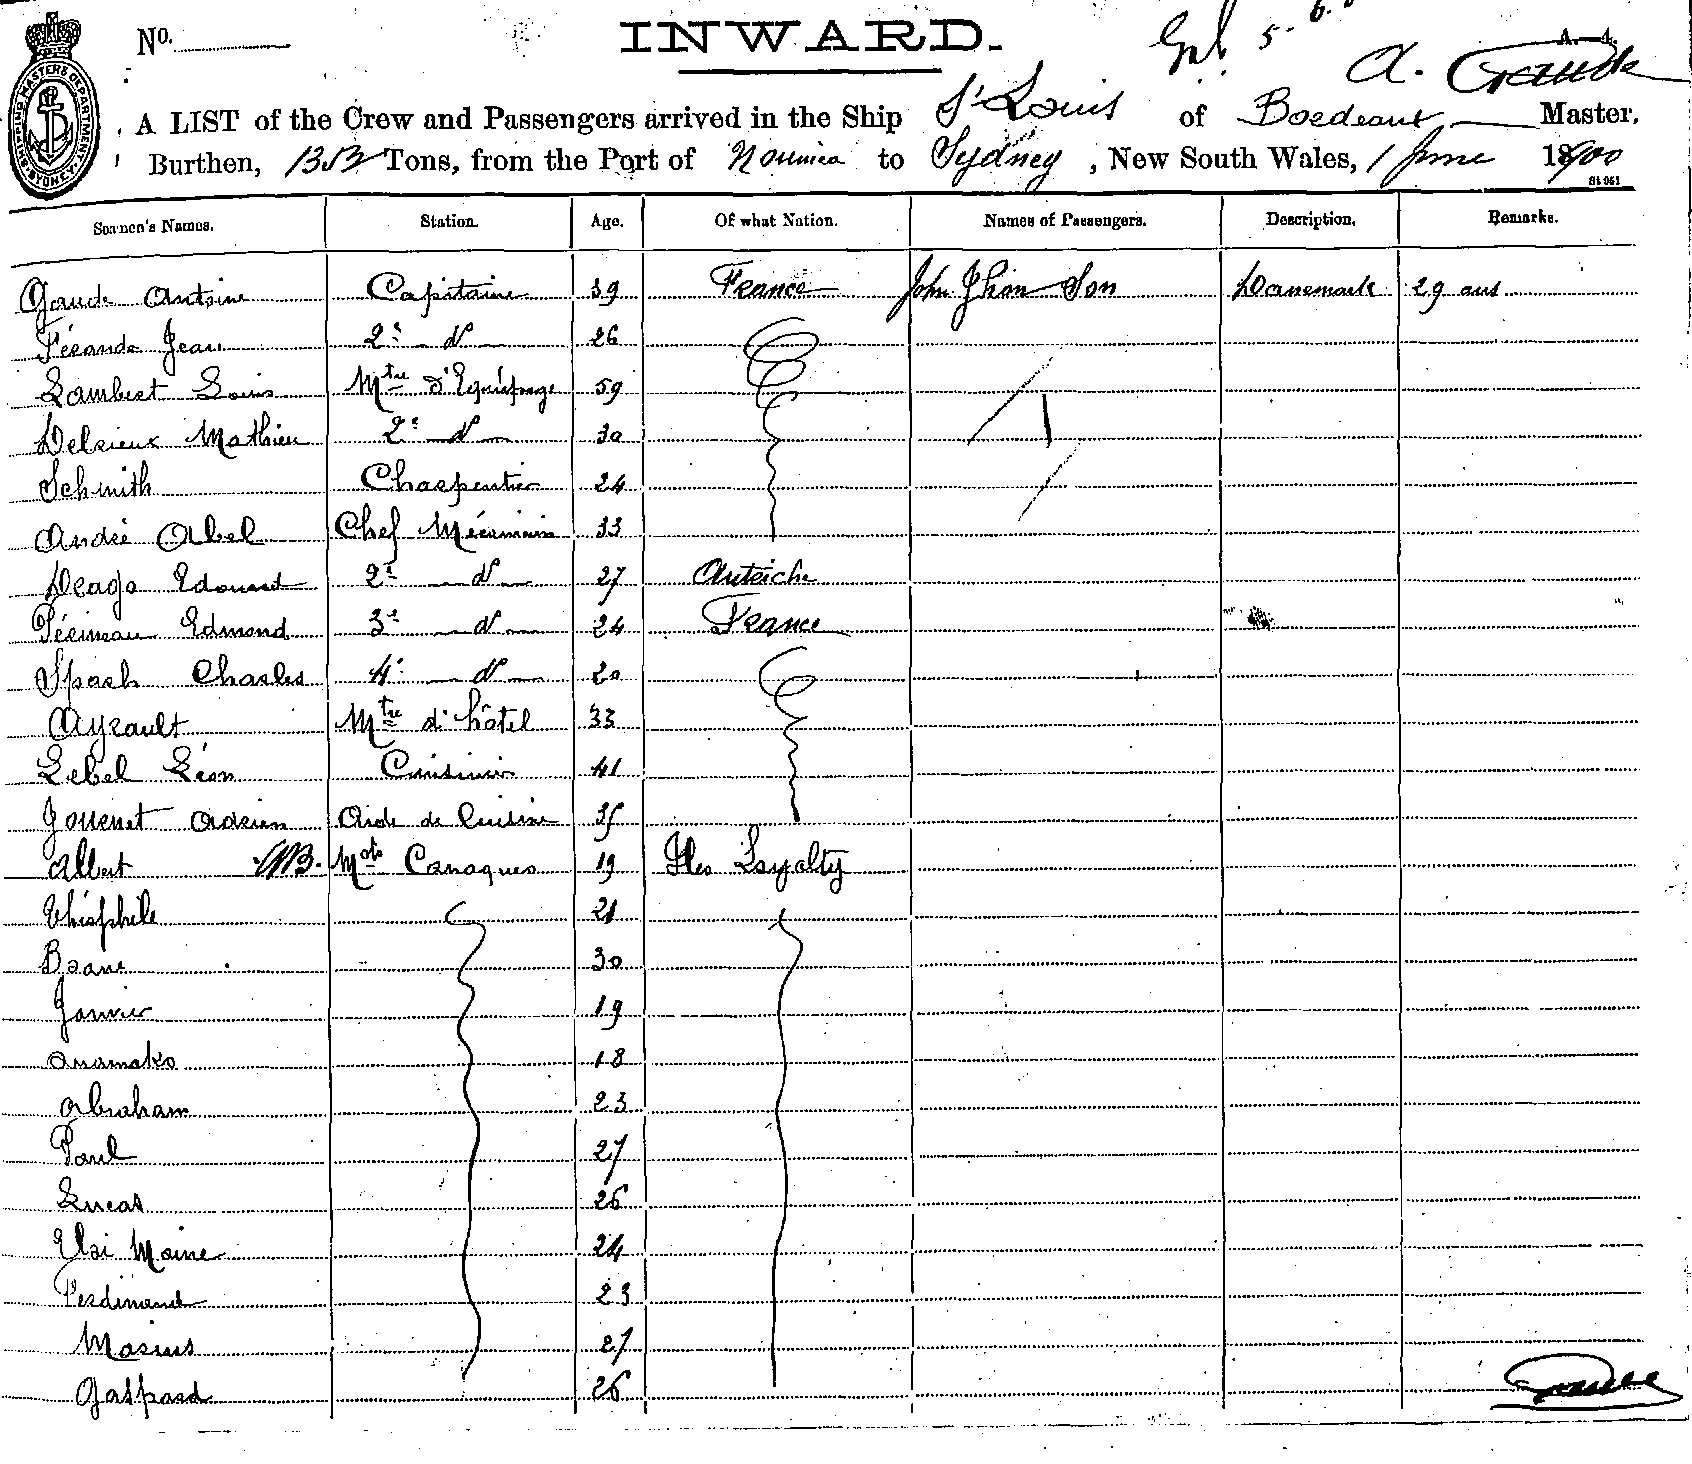 No.
INWARD.
5. 6.
A. Gaude
A LIST of the Crew and Passengers arrived in the Ship St Louis of Bordeaux Master,
Burthen, 1353 Tons, from the Port of Noumea to Sydney, New South Wales, 1 June 1900
SHIPPING MASTERS DEPARTMENT SYDNEY
Seamen's Names. Station. Age. Of what Nation. Names of Passengers. Description. Remarks.
Gaude Antoine Capitaine 39 France John Son Danemark 29 ans
Férande Jean 2e do 26
Lambert Louis Mtre d'Equipage 59
Delrieux Mathieu 2e do 30
Schmith Charpentier 24
André Abel Chef Mécanicien 33
Deago Edouard 2e do 27 Autriche
Périneau Edmond 3e do 24 France
Spach Charles 4e do 20
Ayrault Mtre d'hôtel 33
Lebel Léon Cuisinier 41
Jouenet Adrien Aide de Cuisine 35
Albert Mots Canaques 19 Iles Loyalty
Théophile 21
Brane 30
Janvier 19
Anamako 18
Abraham 23
Paul 27
Lucas 26
Elsi Maine 24
Ferdinand 23
Marius 27
Gaspard 26